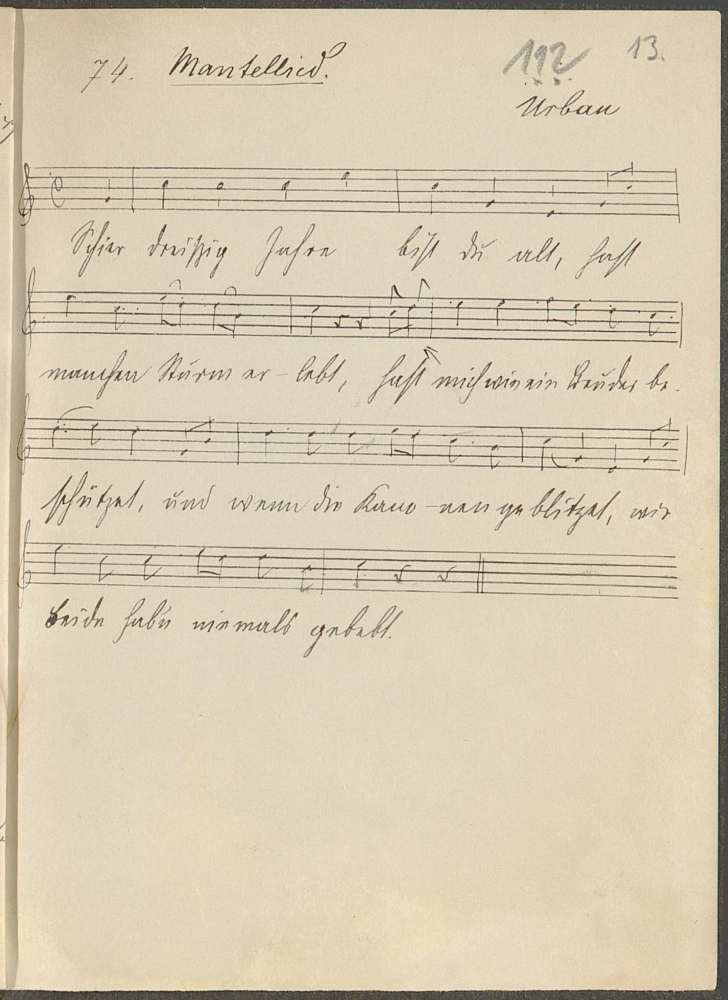 74. Mantellied. 112 13.
Urban
Schier dreißig Jahre bist du alt, hast
manchen Sturm er-lebt, hast mich wie ein Bruder be-
schützet, und wenn die Kano-nen geblitzet, wir
beide hab'n niemals gebebt.